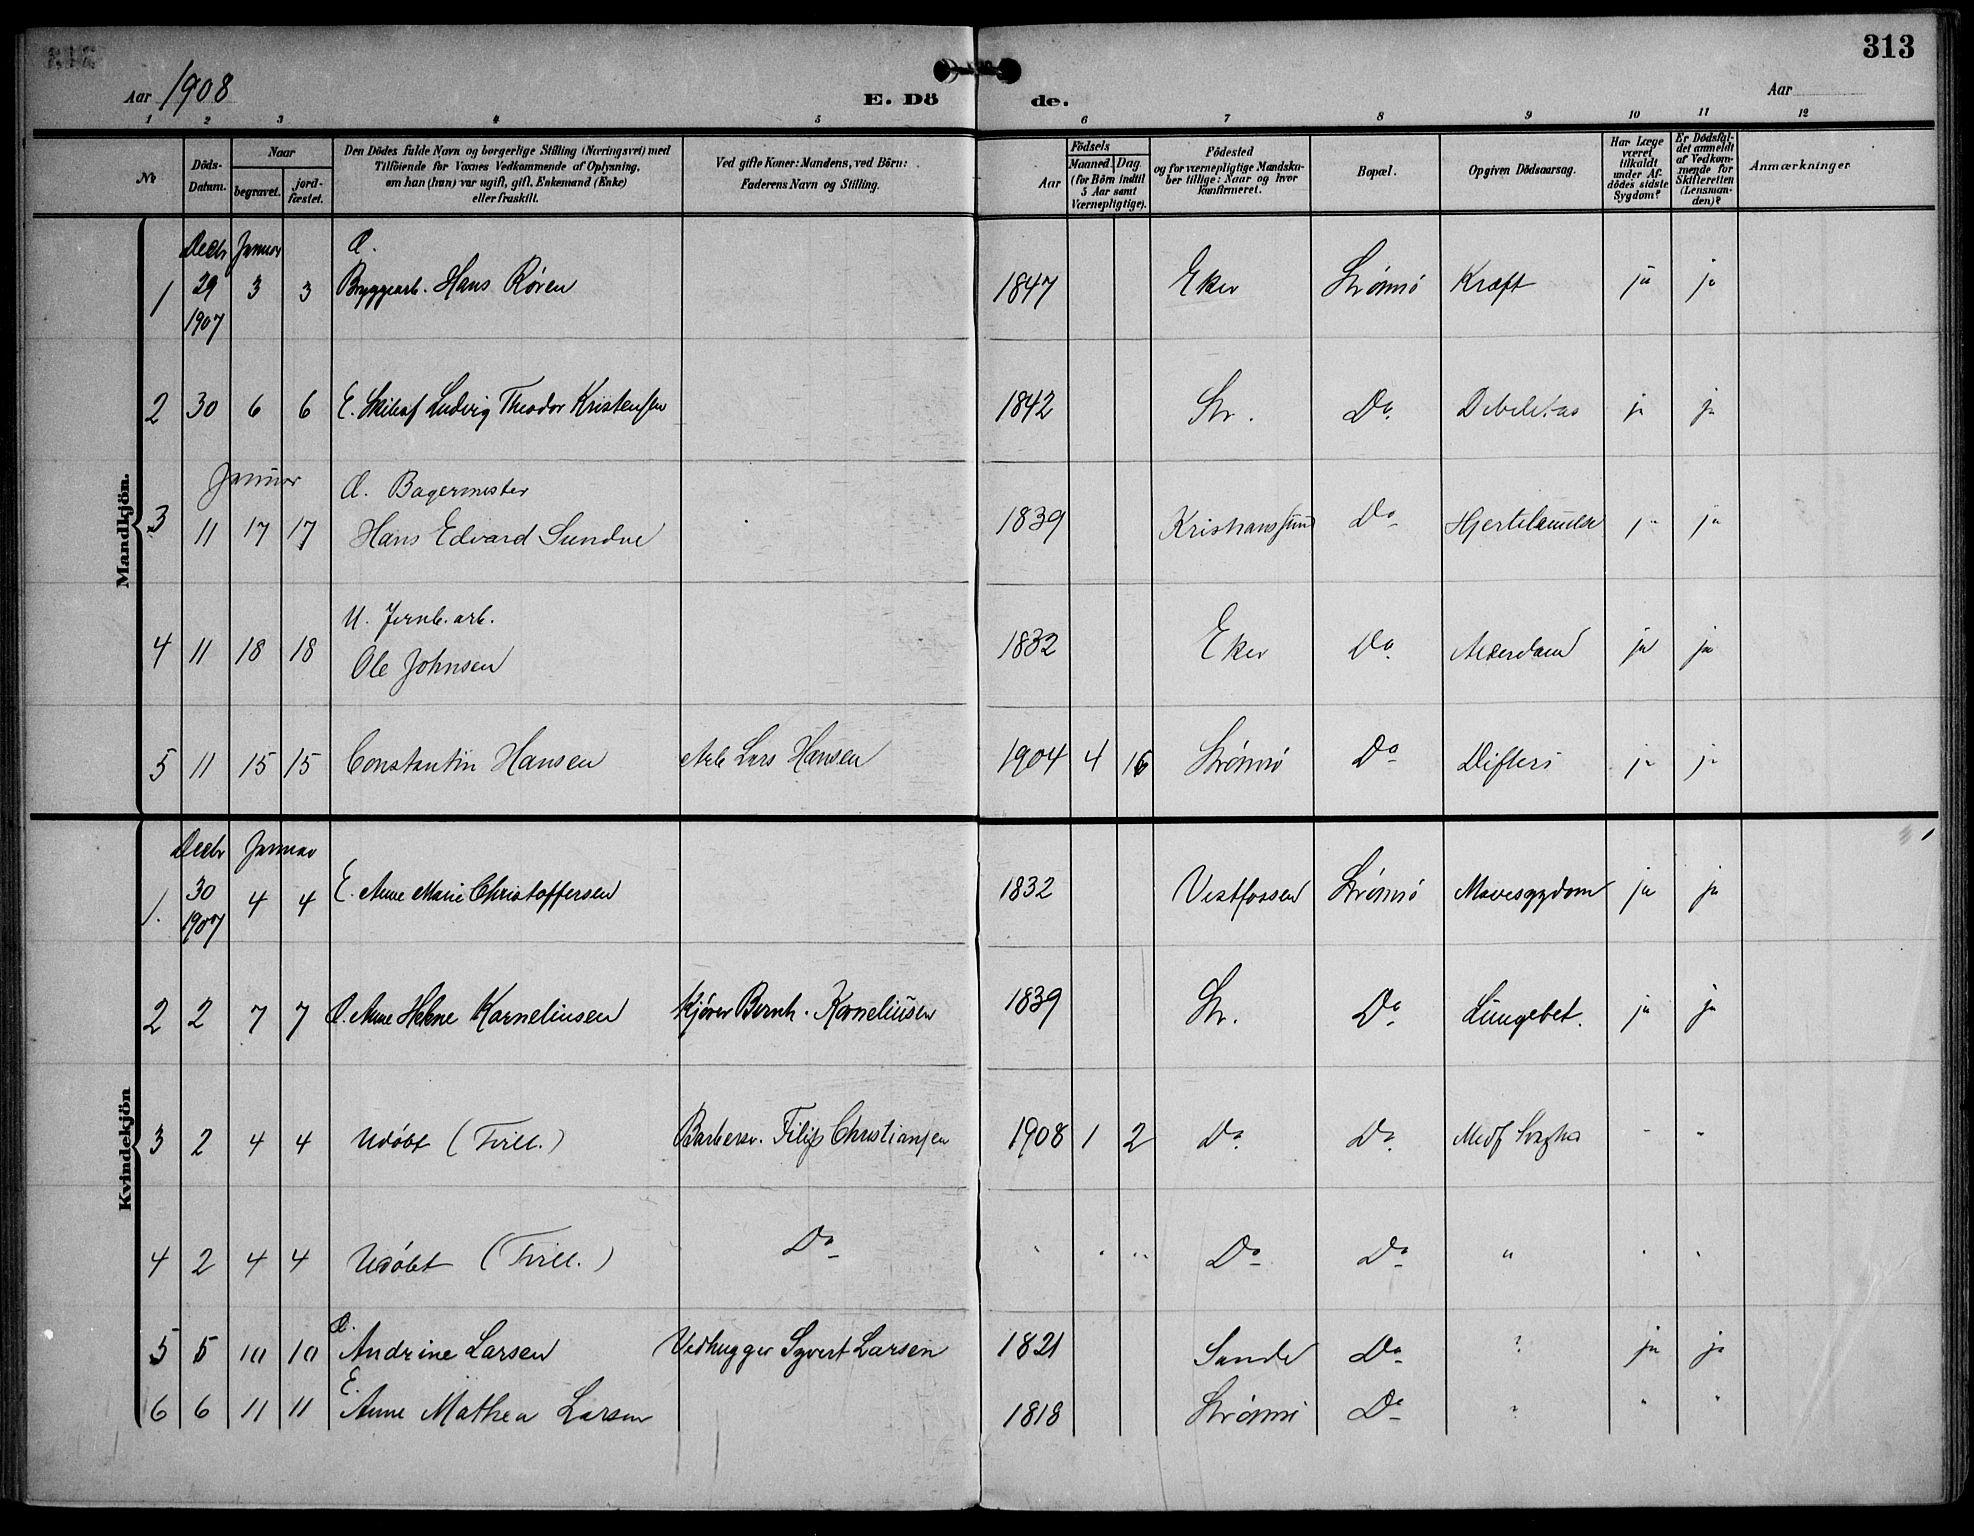 313
Aar 1908
E. Dö de.
Aar
1 2 3 4 5 6 7 8 9 10 11 12
No
Döds-Datum.
Naar
begravet.
jord-fæstet.
Den Dödes fulde Navn og borgerlige Stilling (Næringsvei) med
Tilföiende for Voxnes Vedkommende af Oplysning,
om han (hun) var ugift, gift, Enkemand (Enke)
eller fraskilt.
Ved gifte Koner: Mandens, ved Börn:
Faderens Navn og Stilling.
Födsels
Aar
Maaned. Dag.
(for Börn indtil
5 Aar samt
Værnepligtige).
Födested
og for værnepligtige Mandska-
ber tillige: Naar og hvor
konfirmeret.
Bopæl.
Opgiven Dödsaarsag.
Har Læge
været
tilkaldt
under Af-
dödes sidste
Sygdom?
Er Dödsfal-
det anmeldt
af Vedkom-
mende for
Skifteretten
(Lensman-
den)?
Anmærkninger.
Mandkjön.
Decbr Januar
1 29 1907 3 3 G. Bryggearb. Hans Røren 1847 Eker Strømsø Kræft ja ja
2 30 6 6 E. Ludvig Theodor Kristensen 1842 Str. Do Debilitas ja ja
Januar
3 11 17 17 G. Bagermester Hans Edvard Sundne 1839 Kristianssund Do Hjertelammelse ja ja
4 11 18 18 U. Jernb. arb. Ole Johnsen 1832 Eker Do Alderdom ja ja
5 11 15 15 Constantin Hansen Arb Lars Hansen 1904 4 16 Strømsø Do Difteri ja ja
Kvindekjön
Decbr Januar
1. 30 1907 4 4 E. Anne Marie Christoffersen 1832 Vestfossen Strømsø Mavesygdom ja ja
2 2 7 7 G. Anne Helene Korneliusen Kjører Bernh. Korneliusen 1839 Str. Do Lungebet. ja ja
3 2 4 4 Udøbt (Tvill.) Barbersv. Filip Christiansen 1908 1 2 Do Do Medf - "
4 2 4 4 Udøbt (Tvill.) Do " " " Do Do " " "
5 5 10 10 G. Andrine Larsen Vedhugger Syvert Larsen 1821 Sande Do ? ja ja
6 6 11 11 E. Anne Mathea Larsen 1818 Strømsø Do ? " "